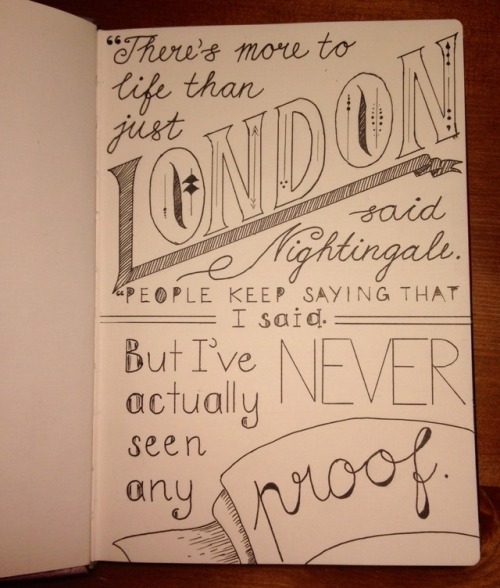 “There's more to
life than
just
LONDON
said
Nightingale.
“PEOPLE KEEP SAYING THAT
I said.
But I've NEVER
actually
seen
any proof.